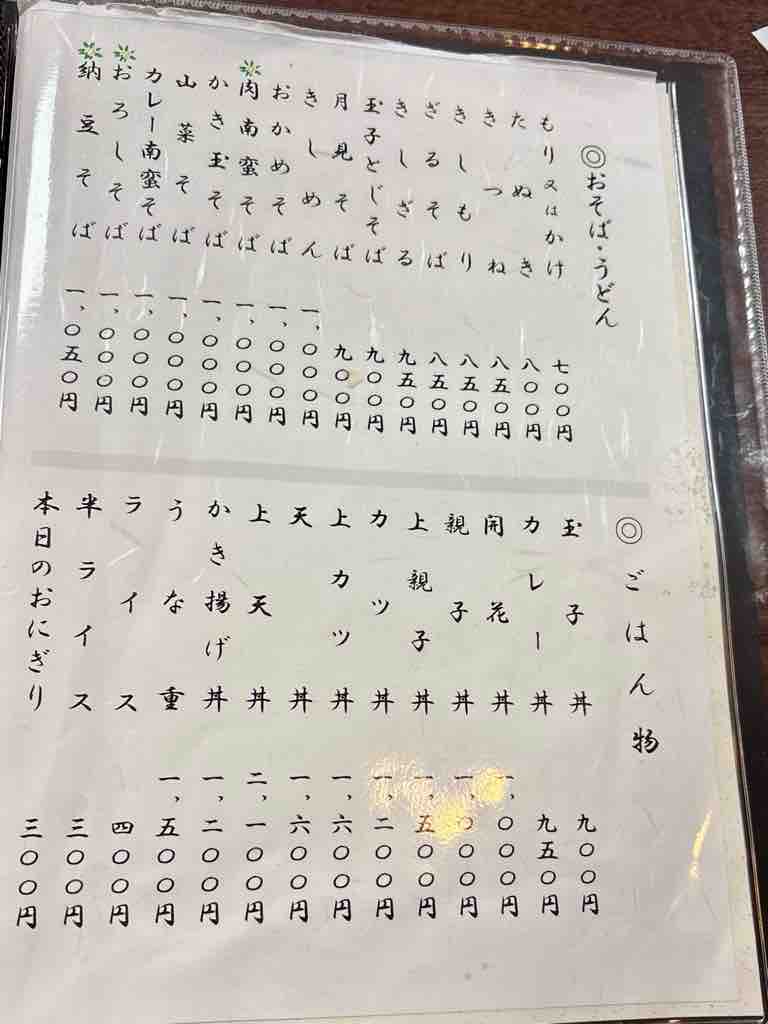 ◎おそば・うどん
もり又はかけ 七〇〇円
たぬき 八〇〇円
きつね 八五〇円
きしもり 八五〇円
ざるそば 八五〇円
きしざる 九五〇円
玉子とじそば 九〇〇円
月見そば 九〇〇円
きしめん 一、〇〇〇円
おかめそば 一、〇〇〇円
肉南蛮そば 一、〇〇〇円
かき玉そば 一、〇〇〇円
山菜そば 一、〇〇〇円
カレー南蛮そば 一、〇〇〇円
おろしそば 一、〇〇〇円
納豆そば 一、〇五〇円
◎ごはん物
玉子丼 九〇〇円
カレー丼 九五〇円
開花丼 一、〇〇〇円
親子丼
上親子丼 一、五〇〇円
カツ丼 一、二〇〇円
上カツ丼 一、六〇〇円
天丼 一、六〇〇円
上天丼 二、一〇〇円
かき揚げ丼 一、二〇〇円
うな重 一、五〇〇円
ライス 四〇〇円
半ライス 三〇〇円
本日のおにぎり 三〇〇円